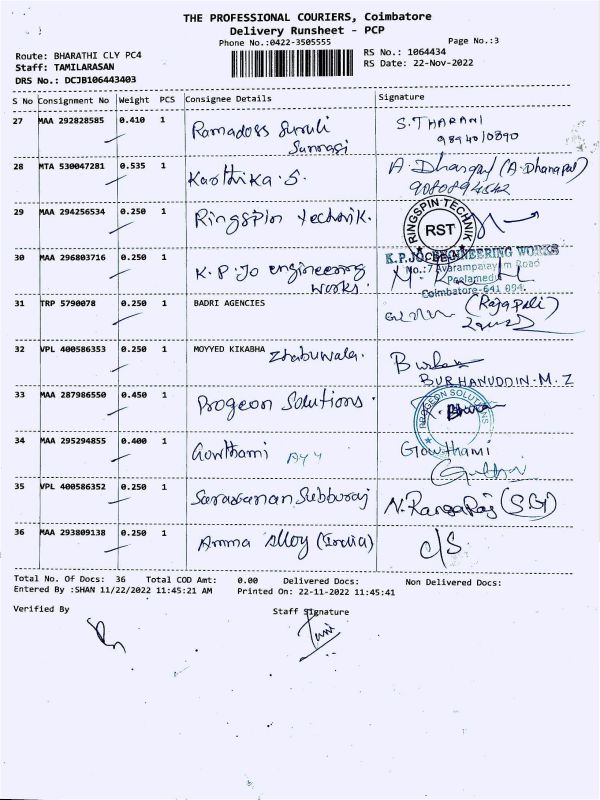 THE PROFESSIONAL COURIERS, Coimbatore
Delivery Runsheet - PCP
Phone No.:0422-3505555
Page No.:3
Route: BHARATHI CLY PC4
RS No.: 1064434
Staff: TAMILARASAN
RS Date: 22-Nov-2022
DRS No.: DCJB106443403
S No Consignment No Weight PCS Consignee Details Signature
27 MAA 292828585 0.410 1 Ramadoss S. THARANI
98940/0890
28 MTA 530047281 0.535 1 Karthika. S. A. Dhanapal (A. Dhanapal)
29 MAA 294256534 0.250 1 Ringspin Technik. RINGSPIN TECHNIK
RST
30 MAA 296803716 0.250 1 K. P. Jo engineering K.P.JO ENGINEERING WORKS
works. No.:7 Avarampalayam Road
Peelamedu
Coimbatore-641 004.
31 TRP 5790078 0.250 1 BADRI AGENCIES
32 VPL 400586353 0.250 1 MOYYED KIKABHA Zhabuwala.
BURHANUDDIN. M. Z
33 MAA 287986550 0.450 1 Progeon Solutions. PROGEON SOLUTIONS
34 MAA 295294855 0.400 1 Gowthami Gowthami
35 VPL 400586352 0.250 1 Saravanan Subburaj N. Rangaraj
36 MAA 293809138 0.250 1 Amma Alloy (India) C/S
Total No. Of Docs: 36 Total COD Amt: 0.00 Delivered Docs: Non Delivered Docs:
Entered By :SHAN 11/22/2022 11:45:21 AM Printed On: 22-11-2022 11:45:41
Verified By Staff Signature